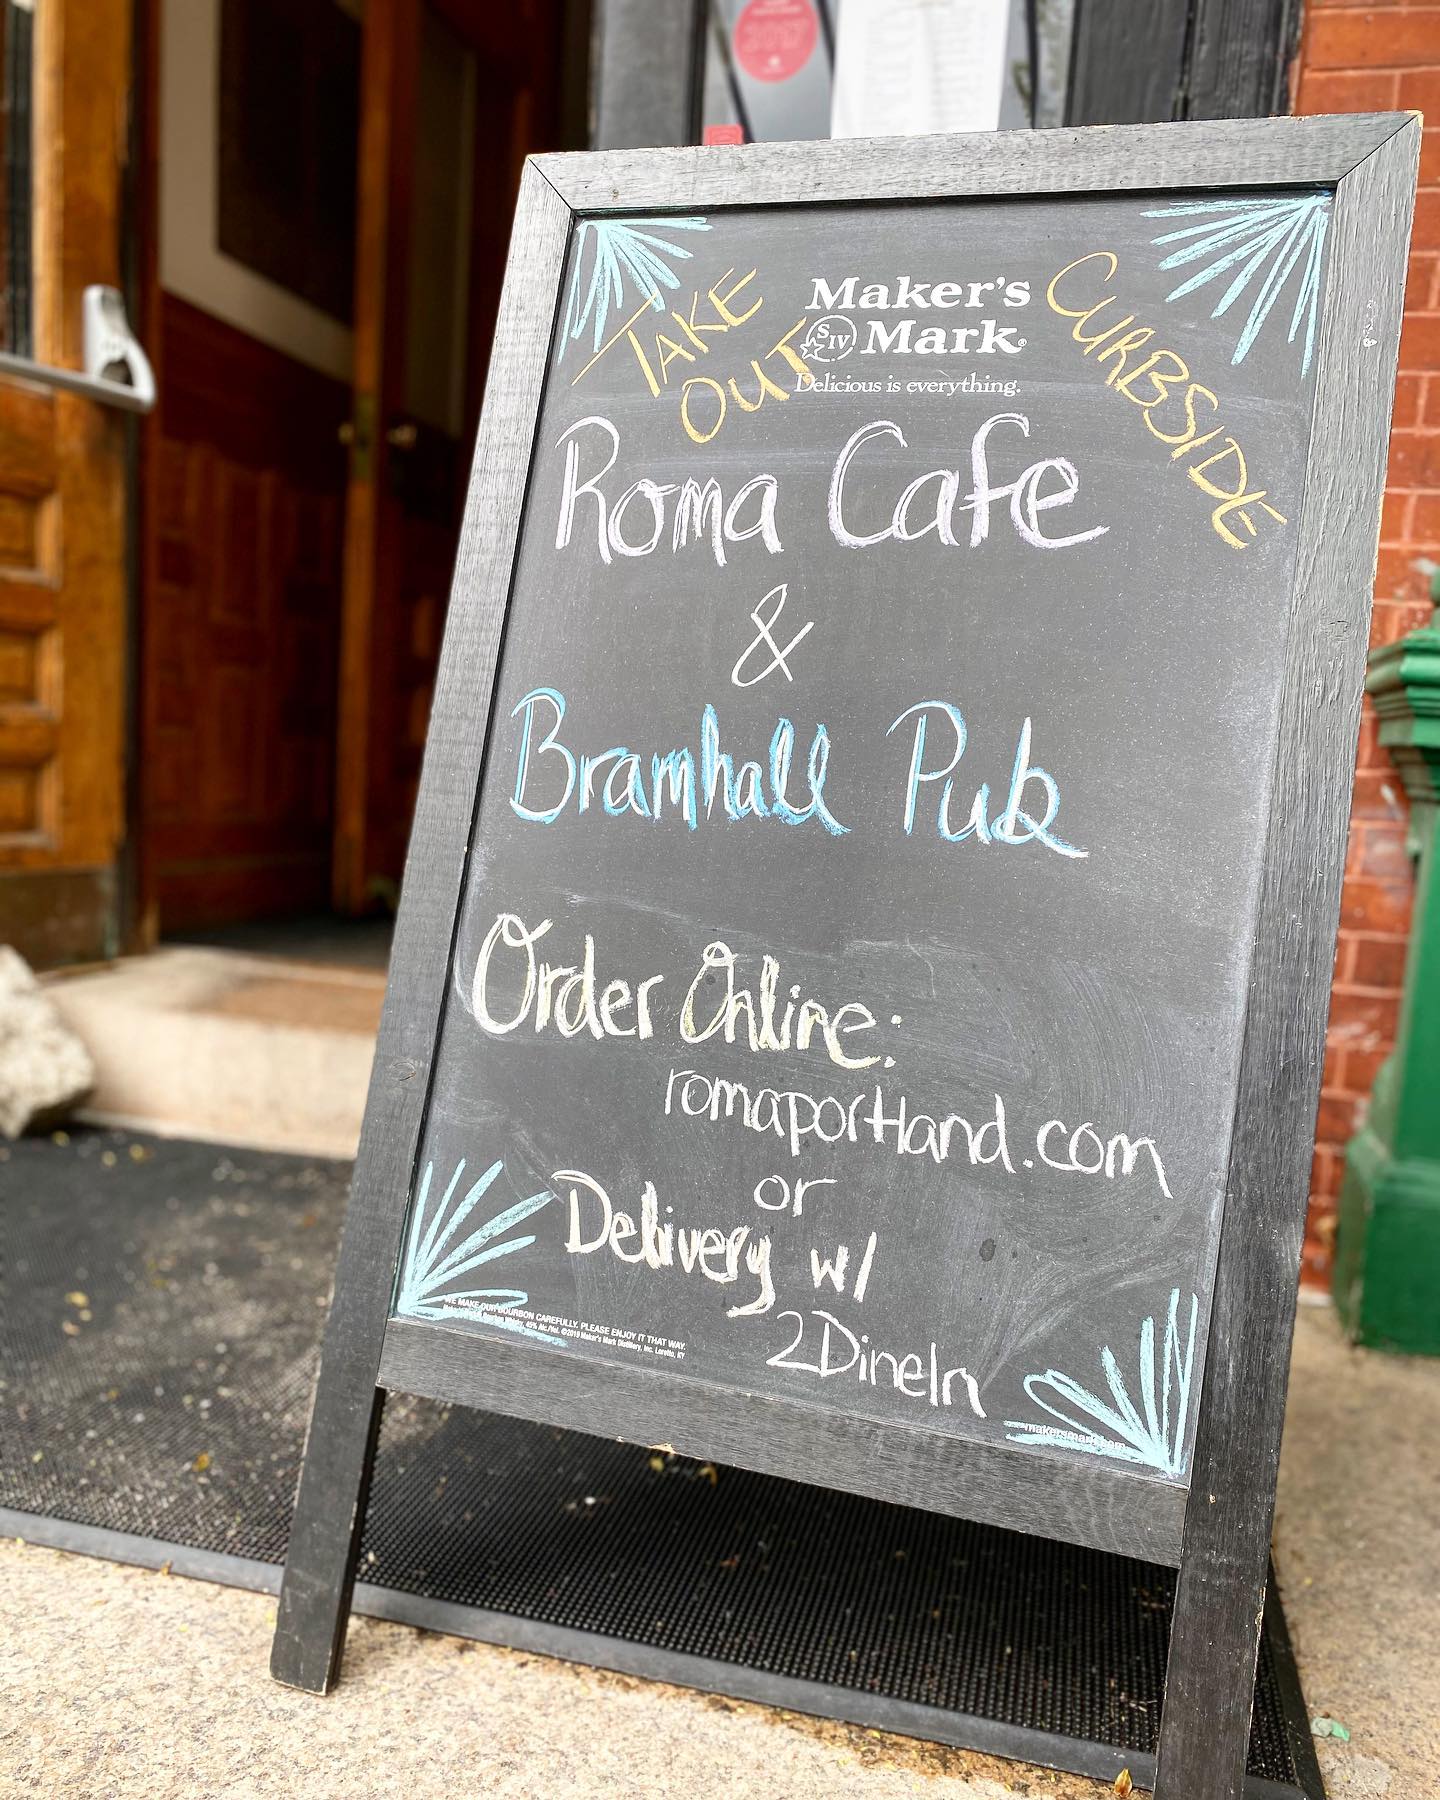 2017
TAKE
OUT
Maker's
SIV Mark®
Delicious is everything.
CURBSIDE
Roma Cafe
&
Bramhall Pub
Order Online:
romaportland.com
or
Delivery w/
2DineIn
WE MAKE OUR BOURBON CAREFULLY. PLEASE ENJOY IT THAT WAY.
Whisky, 45% Alc./Vol. ©2019 Maker's Mark Distillery, Inc. Loretto, KY
makersmark.com